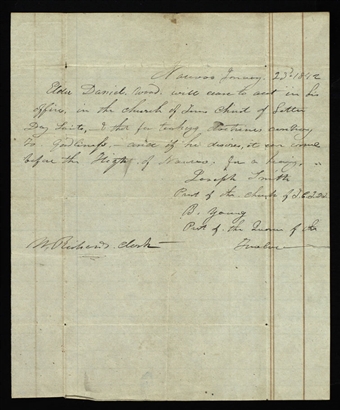 Nauvoo January. 23d 1842
Elder Daniel Wood. will cease to act in his
office, in the church of Jesus Christ of Latter
Day Saints, & that for teaching doctrines contrary
to Godliness, - and if he desires, it can come
before the High of Nauvoo. for a hearing. -
Joseph Smith
Prest of the church of J. C. L. D. S.
B. Young
Prest of the Quorum of the
Twelve
W. Richards. clerk